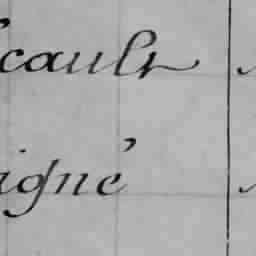 cault
igné